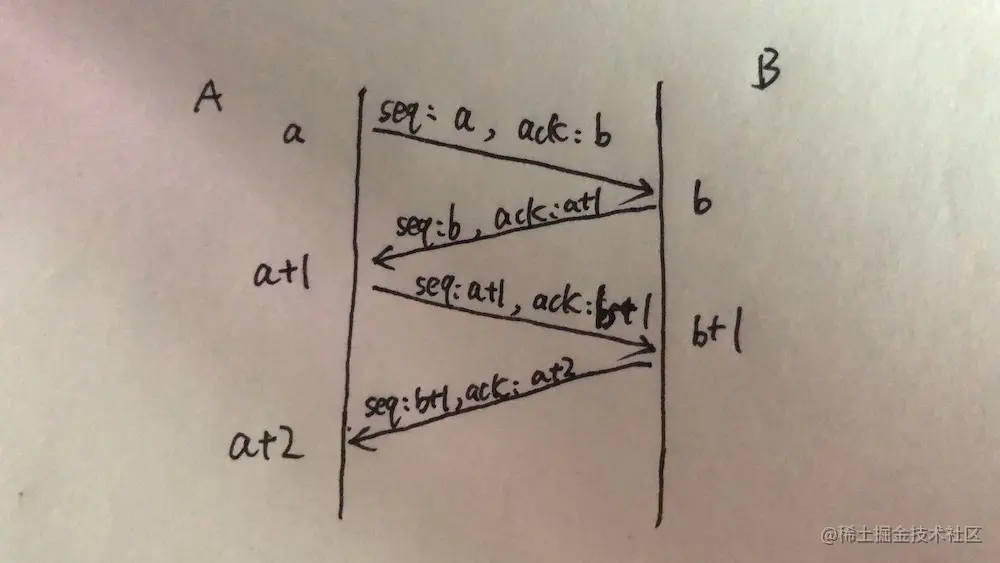 A
B
a
seq: a, ack: b
b
seq: b, ack: a+1
a+1
seq: a+1, ack: b+1
b+1
seq: b+1, ack: a+2
a+2
@稀土掘金技术社区